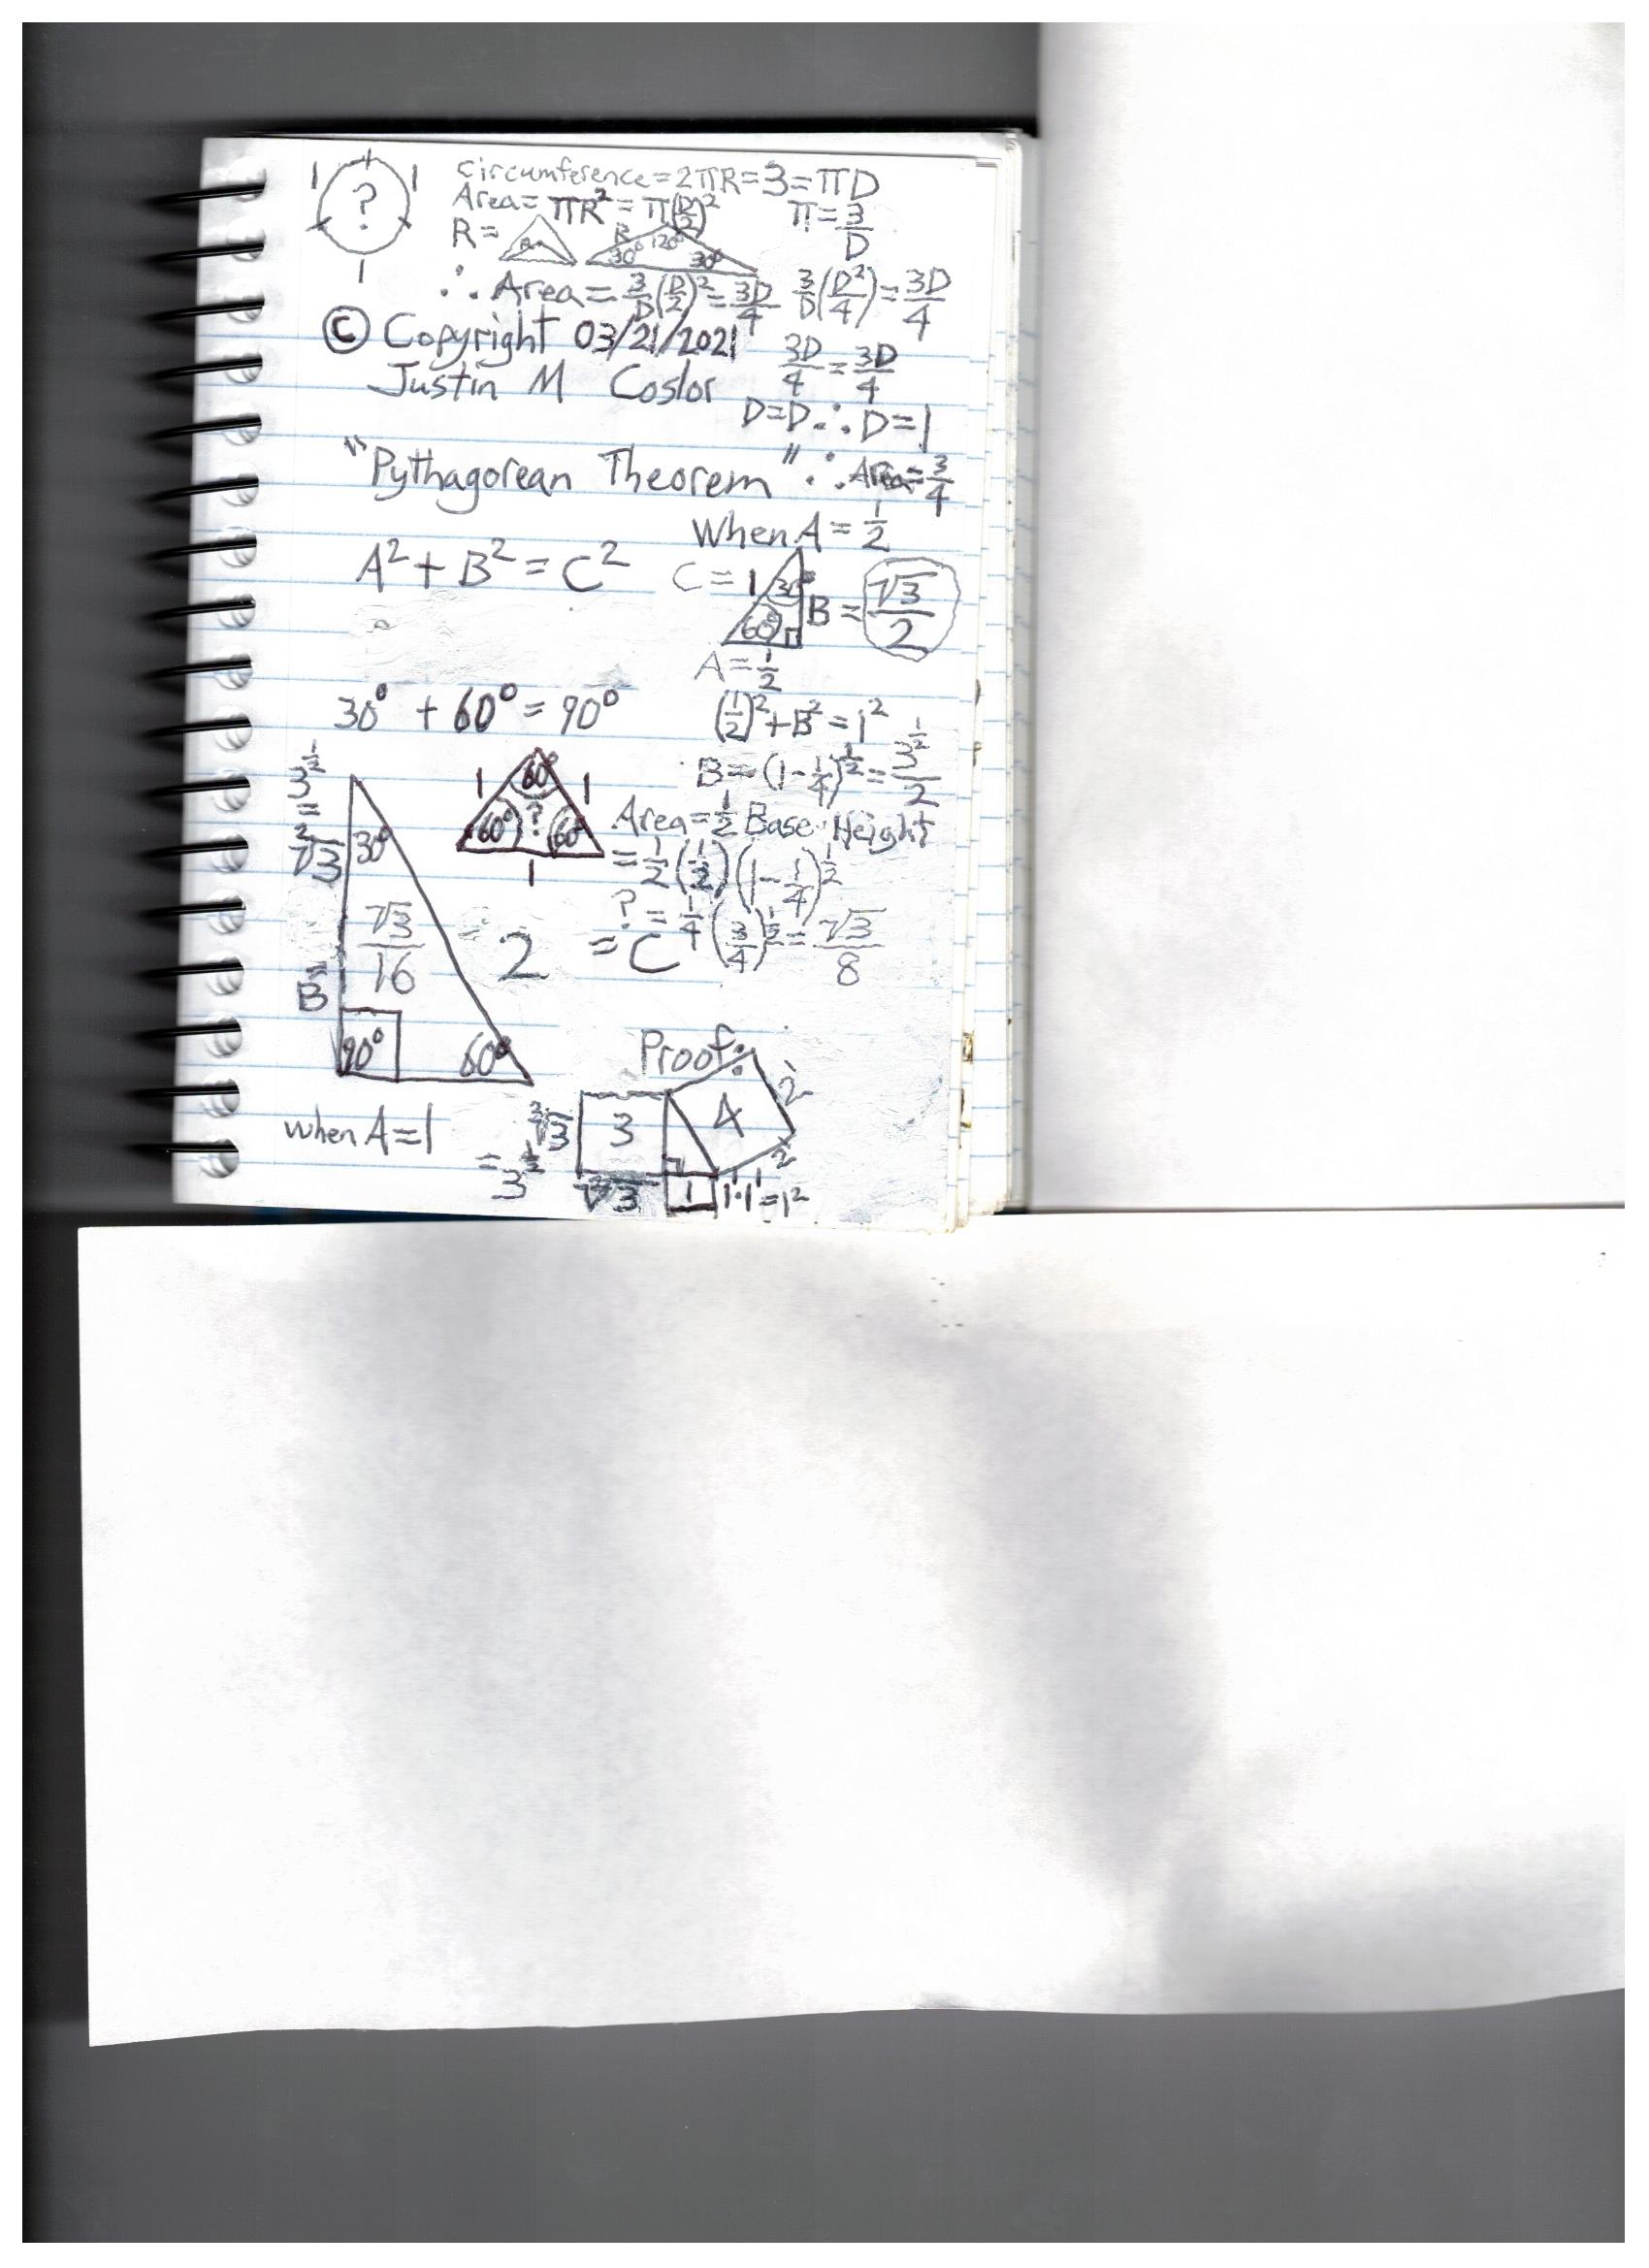 1 ? 1
1
Circumference = 2πR = 3 = πD
Area = πR² = π(D/2)²
π = 3/D
R =
R 120° 30° 30°
∴ Area = 3/D (D/2)² = 3D/4
3/D (D²/4) = 3D/4
© Copyright 03/21/2021
3D/4 = 3D/4
Justin M Coslor
D = D ∴ D = 1
"Pythagorean Theorem"
∴ Area = 3/4
When A = 1/2
A² + B² = C²
C = 1 30° B = √3/2
60°
A = 1/2
30° + 60° = 90°
(1/2)² + B² = 1²
B = (1 - 1/4)^1/2 = 3^1/2 / 2
3^1/2
=
²√3
30°
1 60° 1
60° ? 60°
1
Area = 1/2 Base · Height
= 1/2 (1/2) (1 - 1/4)^1/2
? = 1/4 (3/4)^1/2 = √3/8
√3/16
2 = C
B
90° 60°
Proof:
when A = 1
²√3 3 4 2
= 3^1/2 2
√3 1 1·1 = 1²